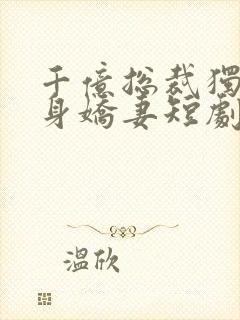 千億總裁獨
身嬌妻短劇
溫欣